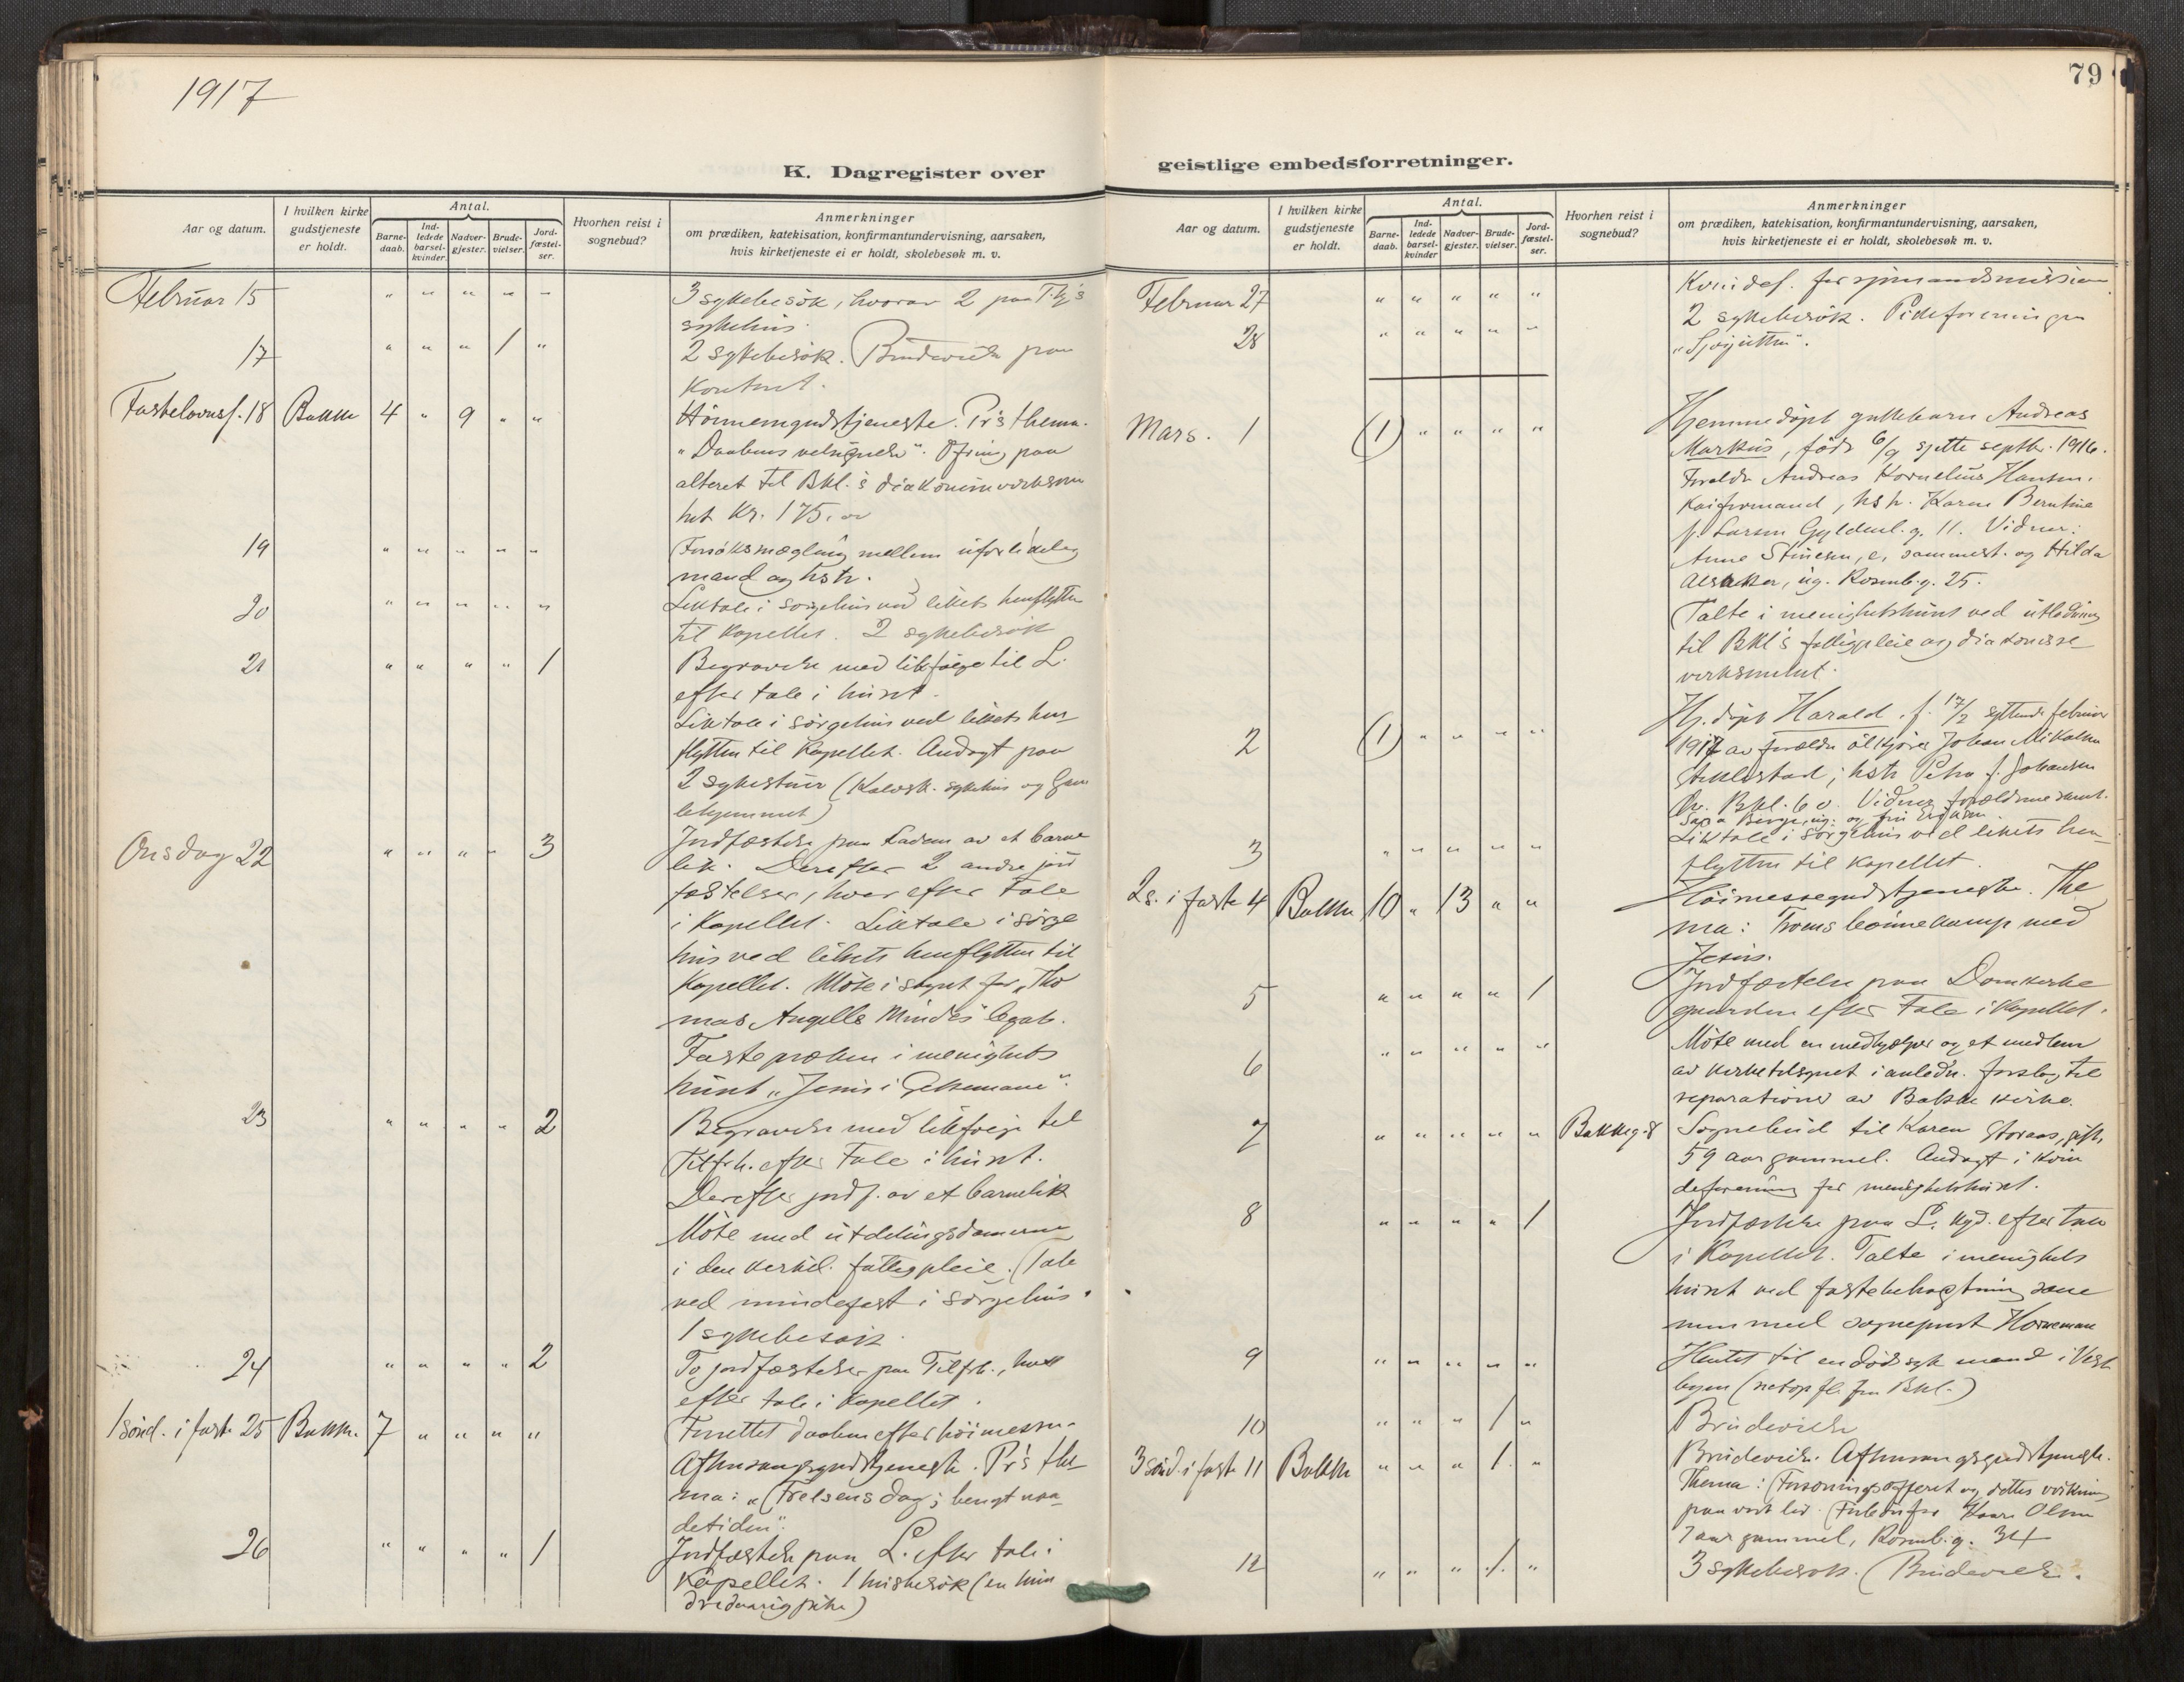 1917
K. Dagregister over
Aar og datum.
I hvilken kirke gudstjeneste er holdt.
Antal.
Barne-daab.
Ind-ledede barsel-kvinder.
Nadver-gjester.
Brude-vielser.
Jord-fæstel-ser.
Hvorhen reist i sognebud?
Anmerkninger
om prædiken, katekisation, konfirmantundervisning, aarsaken,
hvis kirketjeneste ei er holdt, skolebesøk m. v.
Februar 15 " " " " " 3 sykebesök, hvorav 2 paa T.hj's
sykehus.
17 " " " 1 " 2 sykebesök. Brudevielse paa
kontoret.
Fastelavnss. 18 Bakke 4 " 9 " " gudstjeneste. Pr's thema.
"Daabens velsignelse". Ofring paa
alteret til Bkl.'s diakonivirksom
het kr. 175.00
19 " " " " " Forsöksmægling mellem uforlidelig
mand og hstr.
20 " " " " " Liktale i sørgehus ved likets henflytten
til Kapellet. 2 sykebesök
21 " " " " 1 Begravelse med likfølge til L.
efter tale i huset.
Liktale i sørgehus ved likets hen
flytten til Kapellet. Andagt paa
2 sykestuer (Kalvsk. sykehus og Gam
lehjemmet)
Onsdag 22 " " " " 3 Jordfæstelse paa Ladem. av et barne
lik. Derefter 2 andre jord
fæstelser, hver efter Tale
i Kapellet. Liktale i sørge
hus ved likets henflytten til
Kapellet. Möte i styret for "Tho
mas Angells Minde's" legat.
Fastepræken i menighets
huset "Jesus i Getsemane".
23 " " " " 2 Begravelse med likfølge til
Tilfrh. efter Tale i huset.
Derefter jordf. av et barnelik
Möte med utdelingsdamerne
i den kirkel. fattigpleie. Tale
ved mindefest i sørgehus.
1 sykebesøk.
24 " " " " 2 To jordfæstelser paa Tilfrh., hver
efter tale i Kapellet.
1 sönd. i faste 25 Bakke. 7 " " " " Forrettet daaben efter höimessen.
Aftensangsgudstjeneste. Pr's the
ma: "Frelsens dag;
detiden".
26 " " " " 1 Jordfæstelse paa L. efter tale i
Kapellet. 1 husbesök (en hun
dredaarig pike)
79
geistlige embedsforretninger.
Aar og datum.
I hvilken kirke gudstjeneste er holdt.
Antal.
Barne-daab.
Ind-ledede barsel-kvinder
Nadver-gjester.
Brude-vielser.
Jord-fæstel-ser.
Hvorhen reist i sognebud?
Anmerkninger
om prædiken, katekisation, konfirmantundervisning, aarsaken,
hvis kirketjeneste ei er holdt, skolebesøk m. v.
Februar 27 " " " " " Kvindef. for sjömandsmission
28 " " " " " 2 sykebesök. Pikeforeningen
Mars. 1 (1) " " " " Hjemmedöpt guttebarn Andreas
Markus, född 6/9 sjette septbr. 1916.
Foreldre Andreas Kornelius Hansen.
Kaiformand, hstr. Karen Berntine
f. Larsen Gyldenl.g. 11. Vidner:
Anne Stinesen, e, sammest. og Hilda
Alsaker, ug. Rosenb.g. 25.
Talte i menighetshuset ved utlodning
til Bkl's fattigpleie og diakonisse
virksomhet.
2 (1) " " " " Hj.döpt Harald. f. 17/2 syttende februar
1917 av forældre ölkjörer Johan Mikalsen
hstr Petra f. Johansen
Öv. Bkl. 6 v. Vidner forældrene samt.
Berge, ug. og fru
3 " " " " " Liktale i sørgehus ved likets hen
flytten til Kapellet.
2 s. i faste 4 Bakke 10 " 13 " " Höimessegudstjeneste. The
ma: Troens bönnekamp med
Jesus.
5 " " " " 1 Jordfæstelse paa Domkirke
gaarden efter Tale i Kapellet.
6 " " " " " Möte med en medhjælper og et medlem
av kirketilsynet i anledn. forslag til
reparationer av Bakke kirke.
7 " " " " " Bakkeg. 8 Sognebud til Karen Storaas, gift,
59 aar gammel. Andagt i kvin
deforening for menighetshuset.
8 " " " " 1 Jordfæstelse paa L. kgd. efter tale
i Kapellet. Talte i menighets
huset ved fastebetragtning samme
men med sogneprest Horneman
9 " " " " " Hentet til en dødssyk mand i Vest
byen (netop fl. fra Bkl.)
10 " " " 1 " Brudevielse
3 sönd. i faste 11 Bakke " " " 1. " Brudevielse. Aftensangsgudstjeneste.
Thema: Forsoningsofferet og dettes virkning
paa vort liv. Kaare Olsen
7 aar gammel, Rosenb.g. 34
12 " " " 1. " 3 sykebesök. Brudevielse.